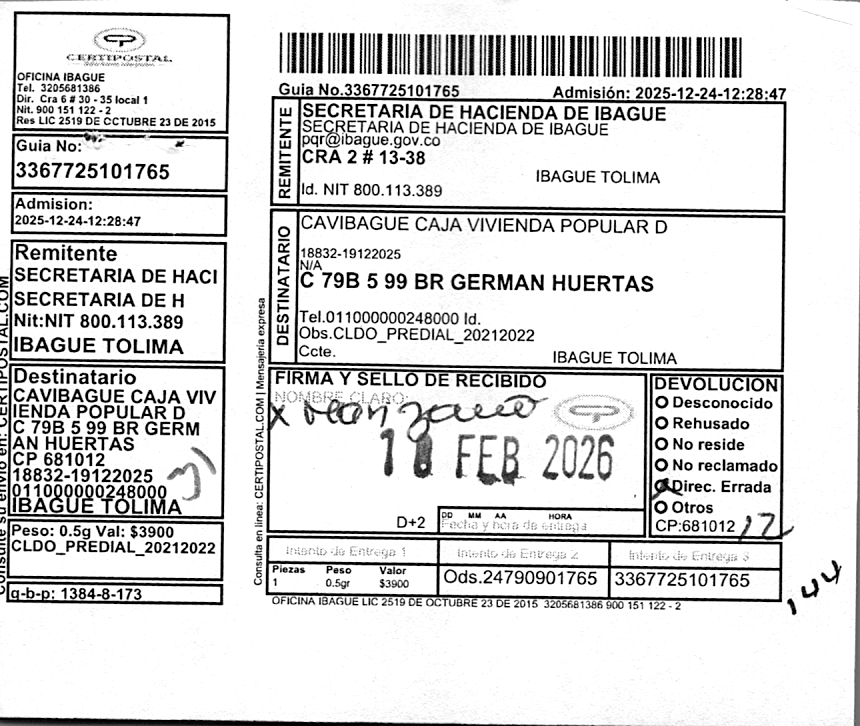 CERTIPOSTAL
OFICINA IBAGUE
Tel. 3205681386
Dir. Cra 6 # 30 - 35 local 1
Nit. 900 151 122 - 2
Res LIC 2519 DE OCTUBRE 23 DE 2015
Guia No:
3367725101765
Admision:
2025-12-24-12:28:47
Remitente
SECRETARIA DE HACI
SECRETARIA DE H
Nit:NIT 800.113.389
IBAGUE TOLIMA
Destinatario
CAVIBAGUE CAJA VIV
IENDA POPULAR D
C 79B 5 99 BR GERM
AN HUERTAS
CP 681012
18832-19122025
011000000248000
IBAGUE TOLIMA
Peso: 0.5g Val: $3900
CLDO_PREDIAL_20212022
q-b-p: 1384-8-173
Guia No.3367725101765 Admisión: 2025-12-24-12:28:47
REMITENTE
SECRETARIA DE HACIENDA DE IBAGUE
SECRETARIA DE HACIENDA DE IBAGUE
pqr@ibague.gov.co
CRA 2 # 13-38
IBAGUE TOLIMA
Id. NIT 800.113.389
DESTINATARIO
CAVIBAGUE CAJA VIVIENDA POPULAR D
18832-19122025
N/A
C 79B 5 99 BR GERMAN HUERTAS
Tel.011000000248000 Id.
Obs.CLDO_PREDIAL_20212022
Ccte. IBAGUE TOLIMA
Consulta en línea: CERTIPOSTAL.COM | Mensajería expresa
FIRMA Y SELLO DE RECIBIDO
NOMBRE CLARO:
x Manzano
18 FEB 2026
D+2
DD MM AA HORA
Fecha y hora de entrega
DEVOLUCION
Desconocido
Rehusado
No reside
No reclamado
Direc. Errada
Otros
CP:681012
12
Intento de Entrega 1 Intento de Entrega 2 Intento de Entrega 3
Piezas Peso Valor
1 0.5gr $3900
Ods.24790901765 3367725101765
OFICINA IBAGUE LIC 2519 DE OCTUBRE 23 DE 2015 3205681386 900 151 122 - 2
144